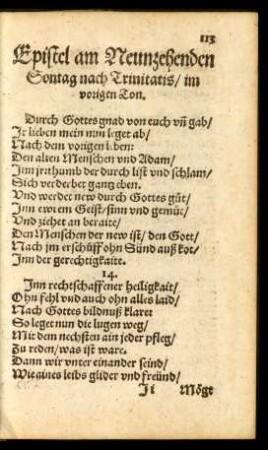 113
Epistel am Neunzehenden
Sontag nach Trinitatis/ im
vorigen Ton.
Durch Gottes gnad von euch vñ gab/
Ir lieben mein nun leget ab/
Nach dem vorigen leben:
Den alten Menschen vnd Adam/
Inn jrthumb der durch list vnd schlam/
Sich verderbet gantz eben.
Vnd werdet new durch Gottes güt/
Inn ewrem Geist/ sinn vnd gemüt/
Vnd ziehet an beraite/
Den Menschen der new ist/ den Gott/
Nach jm erschüff ohn Sünd auß kot/
Inn der gerechtigkaitt.
14.
Inn rechtschaffener heiligkait/
Ohn fehl vnd auch ohn alles laid/
Nach Gottes bildnuß klaret
So leget nun die lugen weg/
Mit dem nechsten ain jeder pfleg/
Zu reden/ was ist ware.
Dann wir vnter einander seind/
Wie aines leibs glider vnd freünd/
Ii Möge